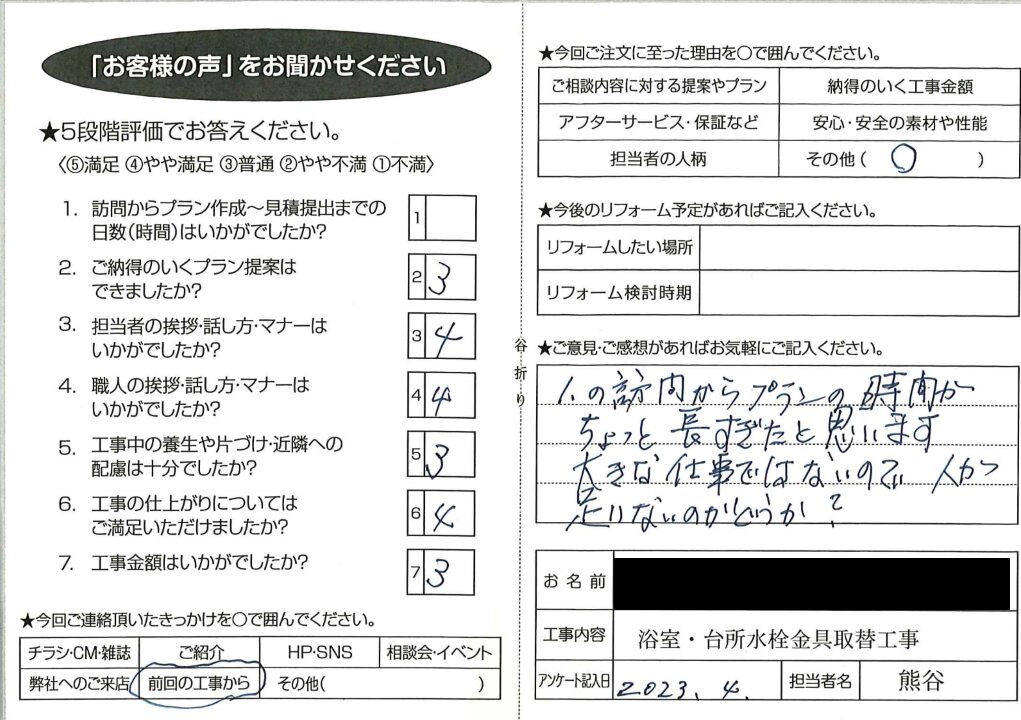 「お客様の声」をお聞かせください
★5段階評価でお答えください。
〈⑤満足 ④やや満足 ③普通 ②やや不満 ①不満〉
1. 訪問からプラン作成～見積提出までの
日数(時間)はいかがでしたか?
1
2. ご納得のいくプラン提案は
できましたか?
2 3
3. 担当者の挨拶・話し方・マナーは
いかがでしたか?
3 4
4. 職人の挨拶・話し方・マナーは
いかがでしたか?
4 4
5. 工事中の養生や片づけ・近隣への
配慮は十分でしたか?
5 3
6. 工事の仕上がりについては
ご満足いただけましたか?
6 4
7. 工事金額はいかがでしたか?
7 3
★今回ご連絡頂いたきっかけを○で囲んでください。
チラシ・CM・雑誌 ご紹介 HP・SNS 相談会・イベント
弊社へのご来店 前回の工事から その他( )
谷折り
★今回ご注文に至った理由を○で囲んでください。
ご相談内容に対する提案やプラン 納得のいく工事金額
アフターサービス・保証など 安心・安全の素材や性能
担当者の人柄 その他( ○ )
★今後のリフォーム予定があればご記入ください。
リフォームしたい場所
リフォーム検討時期
★ご意見・ご感想があればお気軽にご記入ください。
1.の訪問からプランの時間が
ちょっと長すぎたと思います
大きな仕事ではないので 人が
足りないのかどうか?
お名前
工事内容 浴室・台所水栓金具取替工事
アンケート記入日 2023. 4. 担当者名 熊谷